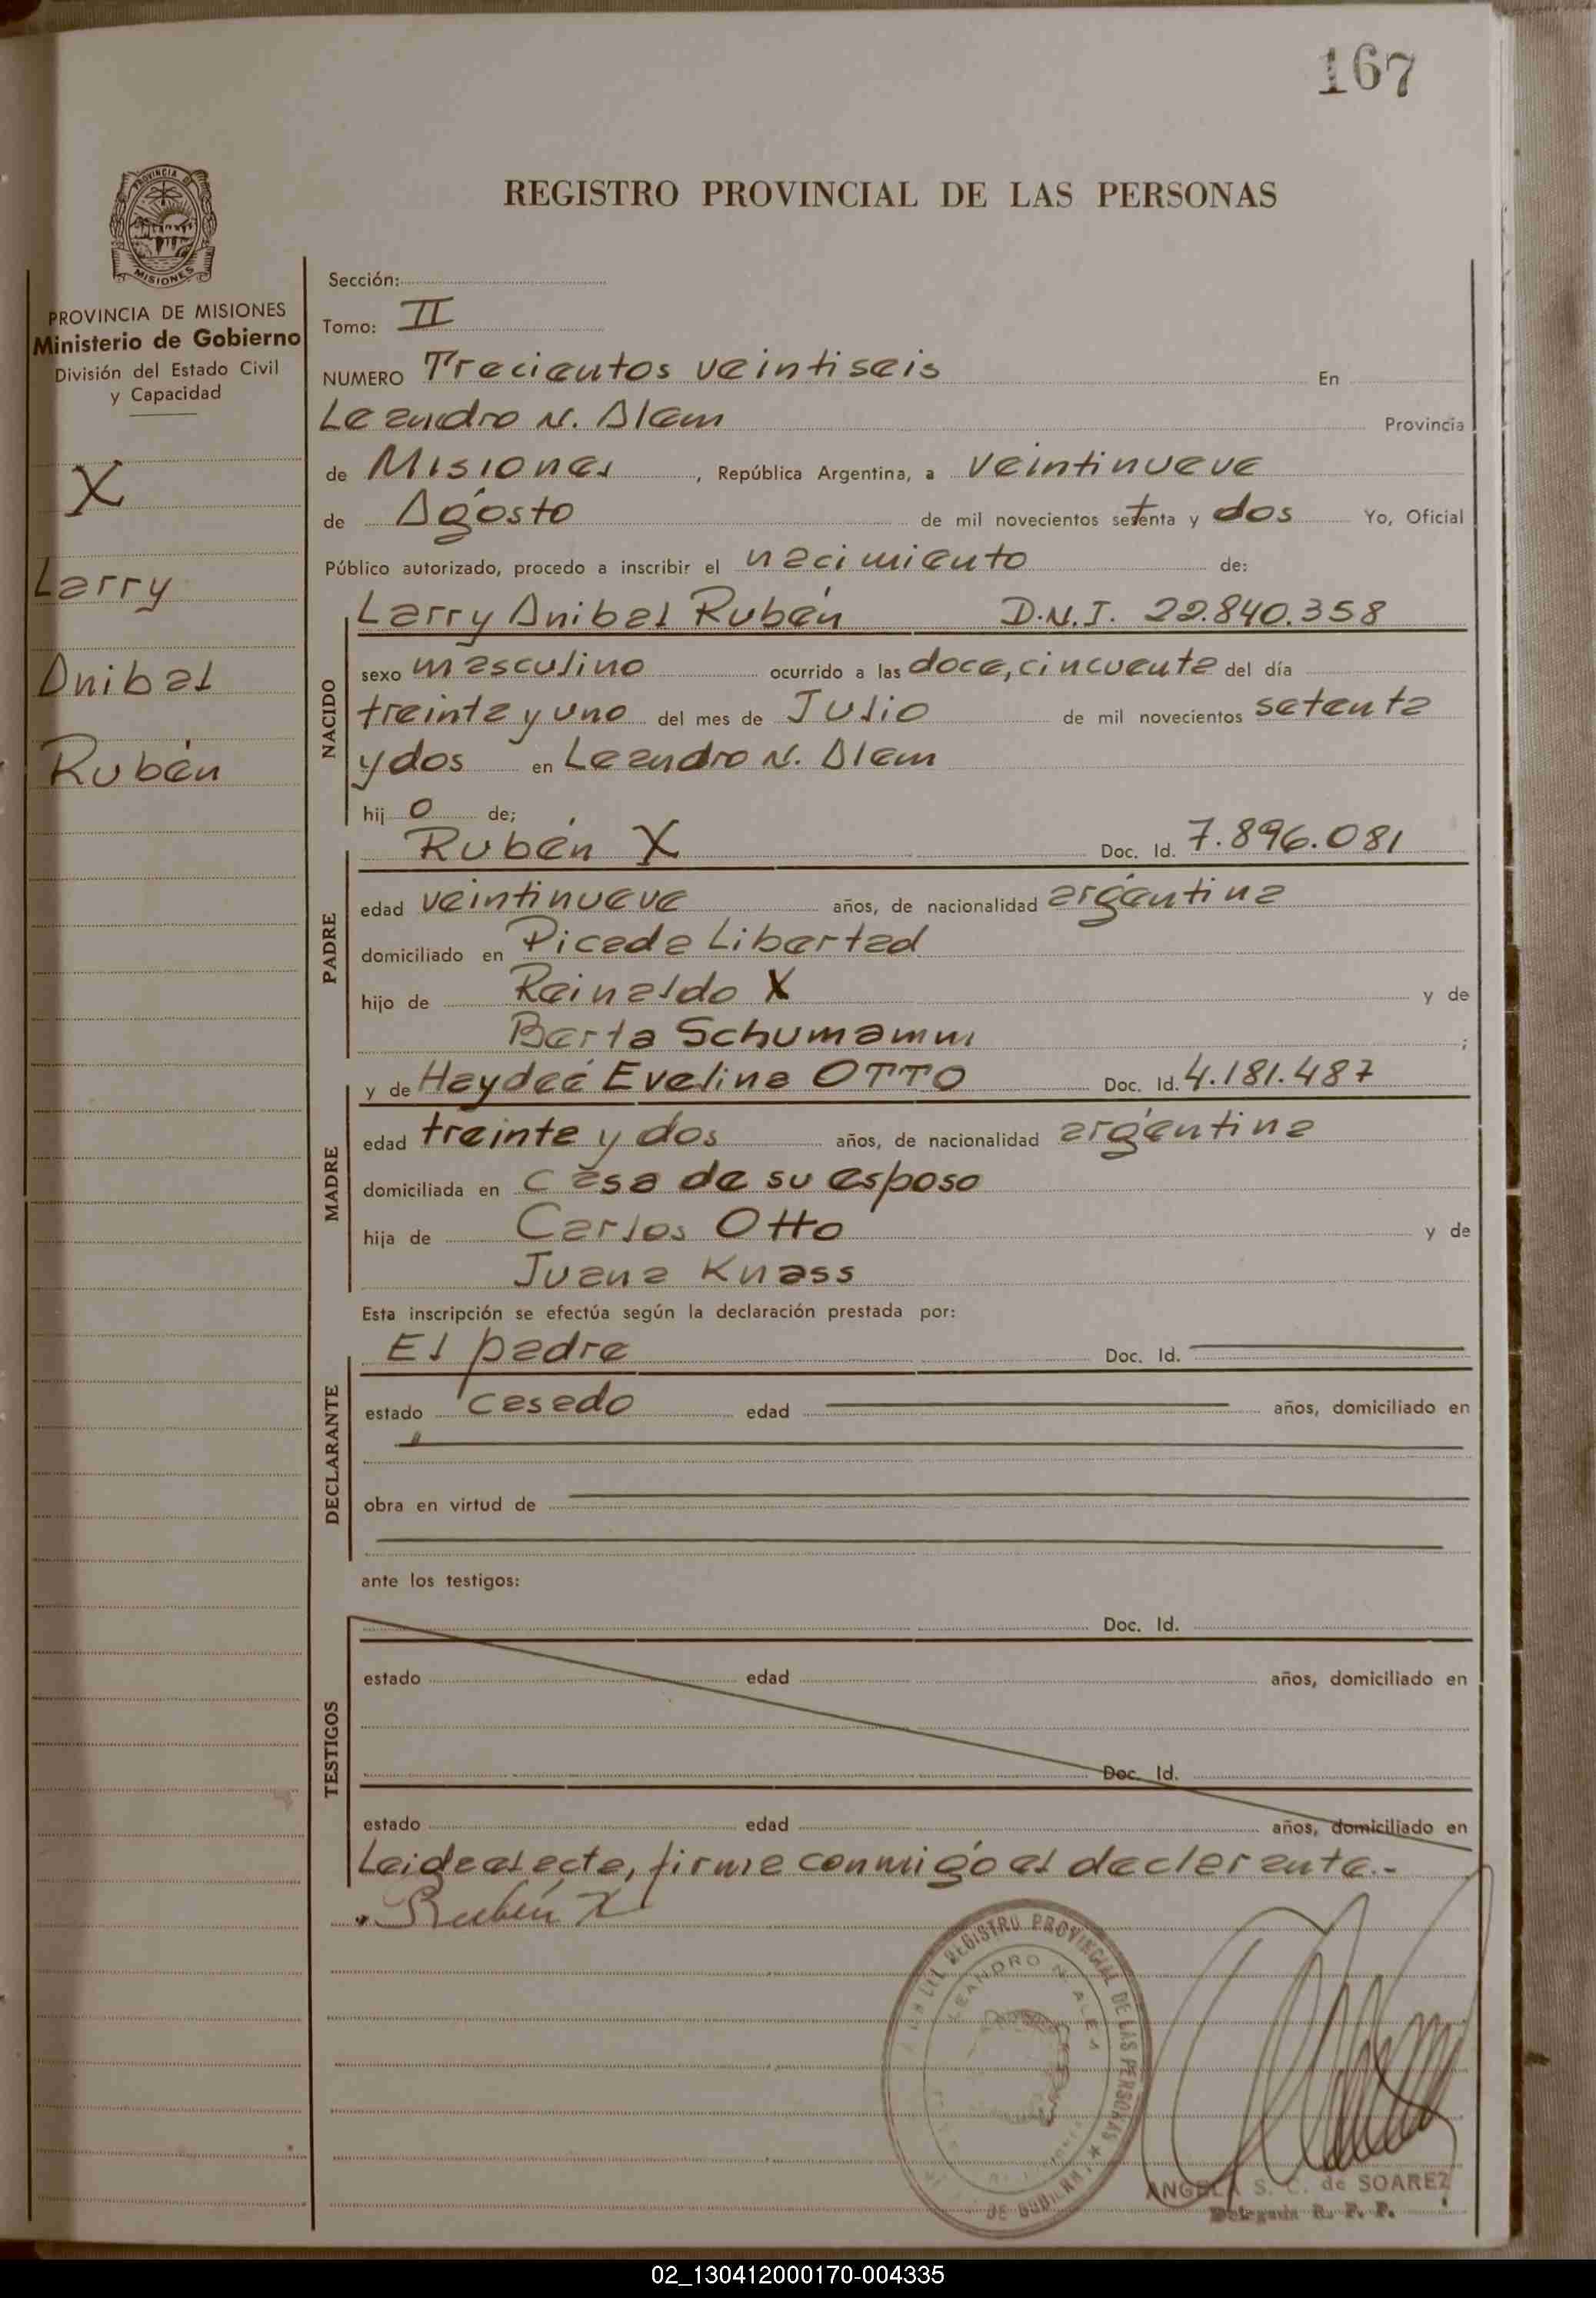 167
PROVINCIA DE
MISIONES
REGISTRO PROVINCIAL DE LAS PERSONAS
PROVINCIA DE MISIONES
Ministerio de Gobierno
División del Estado Civil
y Capacidad
X
Larry
Anibal
Rubén
Sección:
Tomo: II
NUMERO Trecientos veintiseis En
Leandro N. Alem Provincia
de Misiones, República Argentina, a veintinueve
de Agosto de mil novecientos setenta y dos Yo, Oficial
Público autorizado, procedo a inscribir el nacimiento de:
Larry Anibal Rubén D.N.I. 22.840.358
NACIDO
sexo masculino ocurrido a las doce, cincuenta del día
treinta y uno del mes de Julio de mil novecientos setenta
y dos en Leandro N. Alem
hij o de;
Rubén X Doc. Id. 7.896.081
PADRE
edad veintinueve años, de nacionalidad argentina
domiciliado en Picada Libertad
hijo de Reinaldo X y de
Berta Schumamm ;
y de Haydeé Evelina OTTO Doc. Id. 4.181.487
MADRE
edad treinta y dos años, de nacionalidad argentina
domiciliada en casa de su esposo
hija de Carlos Otto y de
Juana Knass
Esta inscripción se efectúa según la declaración prestada por:
El padre Doc. Id.
DECLARANTE
estado casado edad años, domiciliado en
obra en virtud de
ante los testigos:
Doc. Id.
TESTIGOS
estado edad años, domiciliado en
Doc. Id.
estado edad años, domiciliado en
Leida el acta, firma conmigo el declarante.-
Rubén X
REGISTRO PROVINCIAL DE LAS PERSONAS
LEANDRO N. ALEM
DE GOBIERN
ANGELA S. C. de SOAREZ
Delegada R. P. P.
02_130412000170-004335